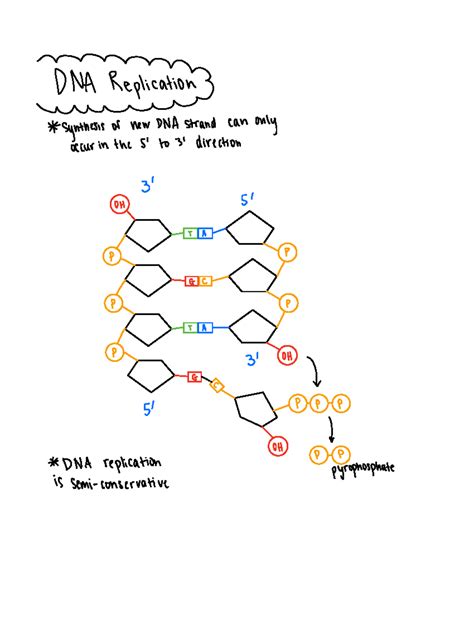 DNA Replication
*Synthesis of new DNA strand can only
occur in the 5' to 3' direction
3'
5'
OH
T A
P
P
G C
P
P
T A
P
3'
OH
G
C
P P P
5'
OH
P P
pyrophosphate
*DNA replication
is semi-conservative